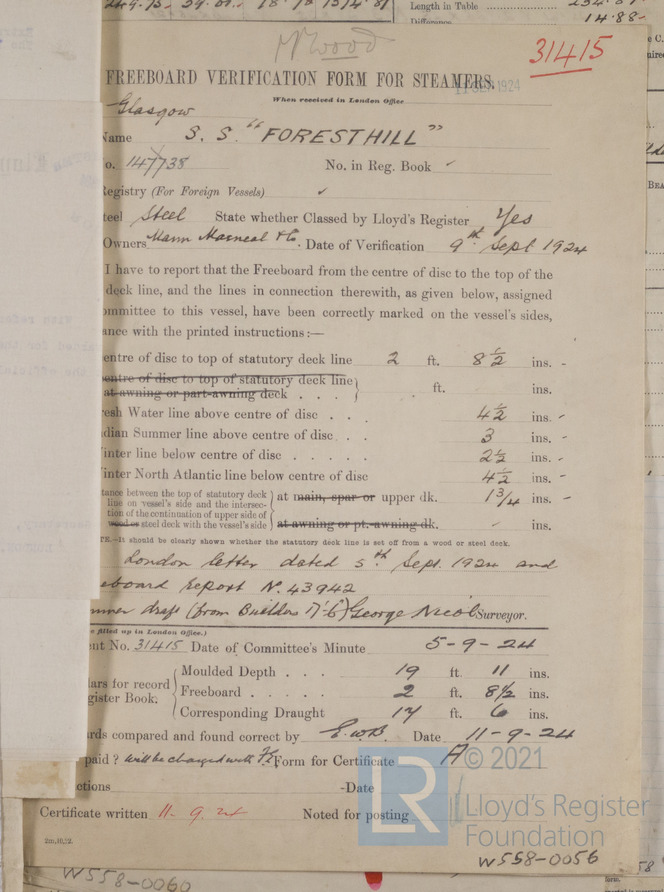 Length in Table
14.88-
Wood
31415
FREEBOARD VERIFICATION FORM FOR STEAMERS.
1924
When received in London Office
Glasgow
Name S. S. "FORESTHILL"
o. 147738 No. in Reg. Book ✓
Registry (For Foreign Vessels) ✓
teel Steel State whether Classed by Lloyd's Register Yes
Owners Mann Macneal & Co. Date of Verification 9th Sept 1924
I have to report that the Freeboard from the centre of disc to the top of the
deck line, and the lines in connection therewith, as given below, assigned
ommittee to this vessel, have been correctly marked on the vessel's sides,
ance with the printed instructions:—
entre of disc to top of statutory deck line 2 ft. 8½ ins. -
entre of disc to top of statutory deck line
at awning or part-awning deck . . . ft. ins.
esh Water line above centre of disc . . . 4½ ins. -
dian Summer line above centre of disc . . 3 ins. -
inter line below centre of disc . . . . . 2½ ins. -
inter North Atlantic line below centre of disc 4½ ins. -
tance between the top of statutory deck
line on vessel's side and the intersec-
tion of the continuation of upper side of
wood or steel deck with the vessel's side
at main, spar or upper dk. 1¾ ins. -
at awning or pt.-awning dk. ✓ ins.
TE.—It should be clearly shown whether the statutory deck line is set off from a wood or steel deck.
London letter dated 5th Sept. 1924 and
eboard report No. 43942
mmer draft (from Builders 17'-6") George Nicol Surveyor.
e filled up in London Office.)
ent No. 31415 Date of Committee's Minute 5-9-24
lars for record
gister Book.
Moulded Depth . . . 19 ft. 11 ins.
Freeboard . . . . . 2 ft. 8½ ins.
Corresponding Draught 17 ft. 6 ins.
rds compared and found correct by E.W.B. Date 11-9-24
paid? will be charged with Form for Certificate A
ctions -Date
Certificate written 11. 9. 24 Noted for posting
2m,10,22.
© 2021
LR
Lloyd's Register
Foundation
W558-0056
W558-0060